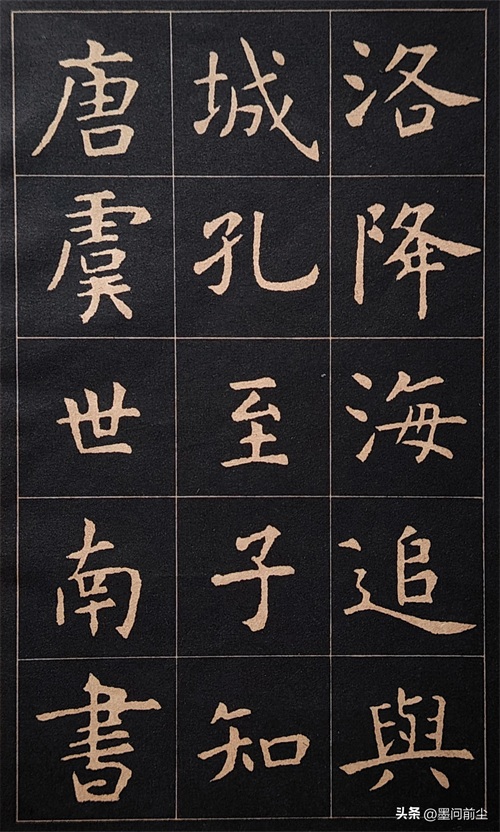 洛降海追與
城孔至子知
唐虞世南書
头条@墨问前尘